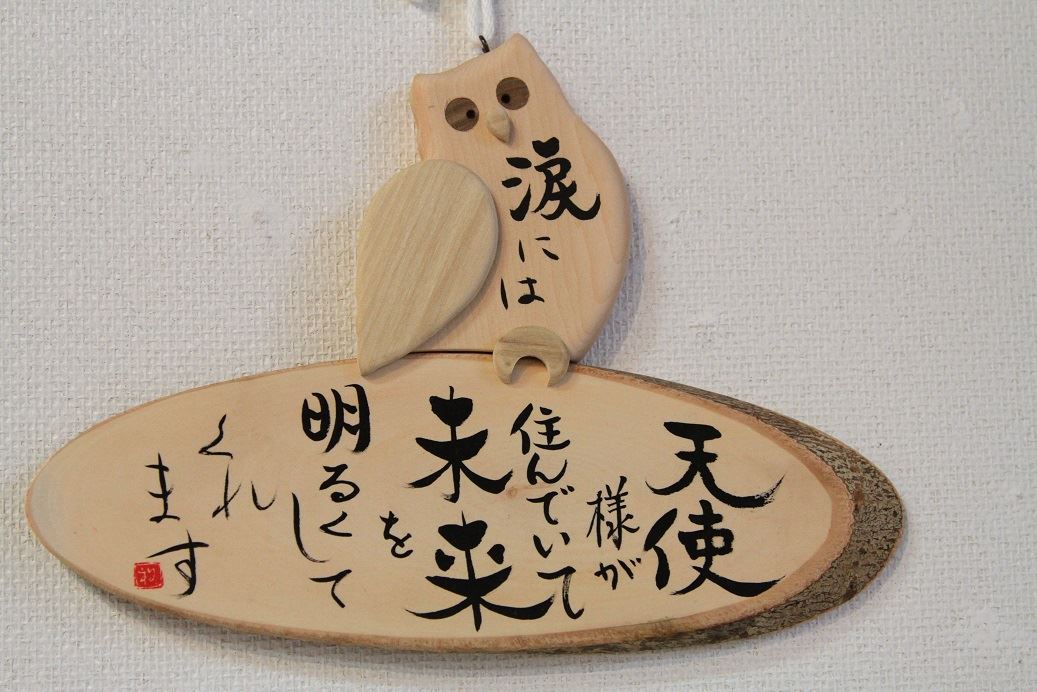 涙
には
天使
様が
住んでいて
未来
を
明るくして
くれ
ます